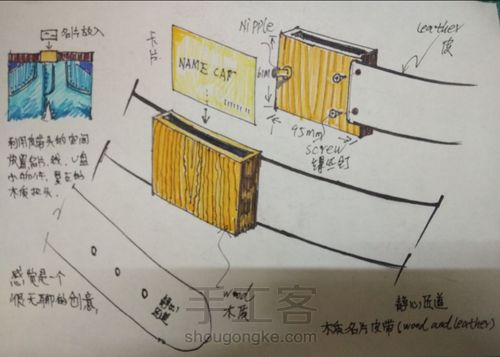 名片放入
卡片
Nipple
leather
皮
NAME CAR
61M
95mm
screw
螺丝钉
利用皮带头的空间
放置名片、钱、U盘
小物件,
木质扣头.
感觉是一个
很无聊的创意,
静心臣道
wood
木质
手工客
shougongke.com
静心臣道
木质名片皮带(wood and leather)